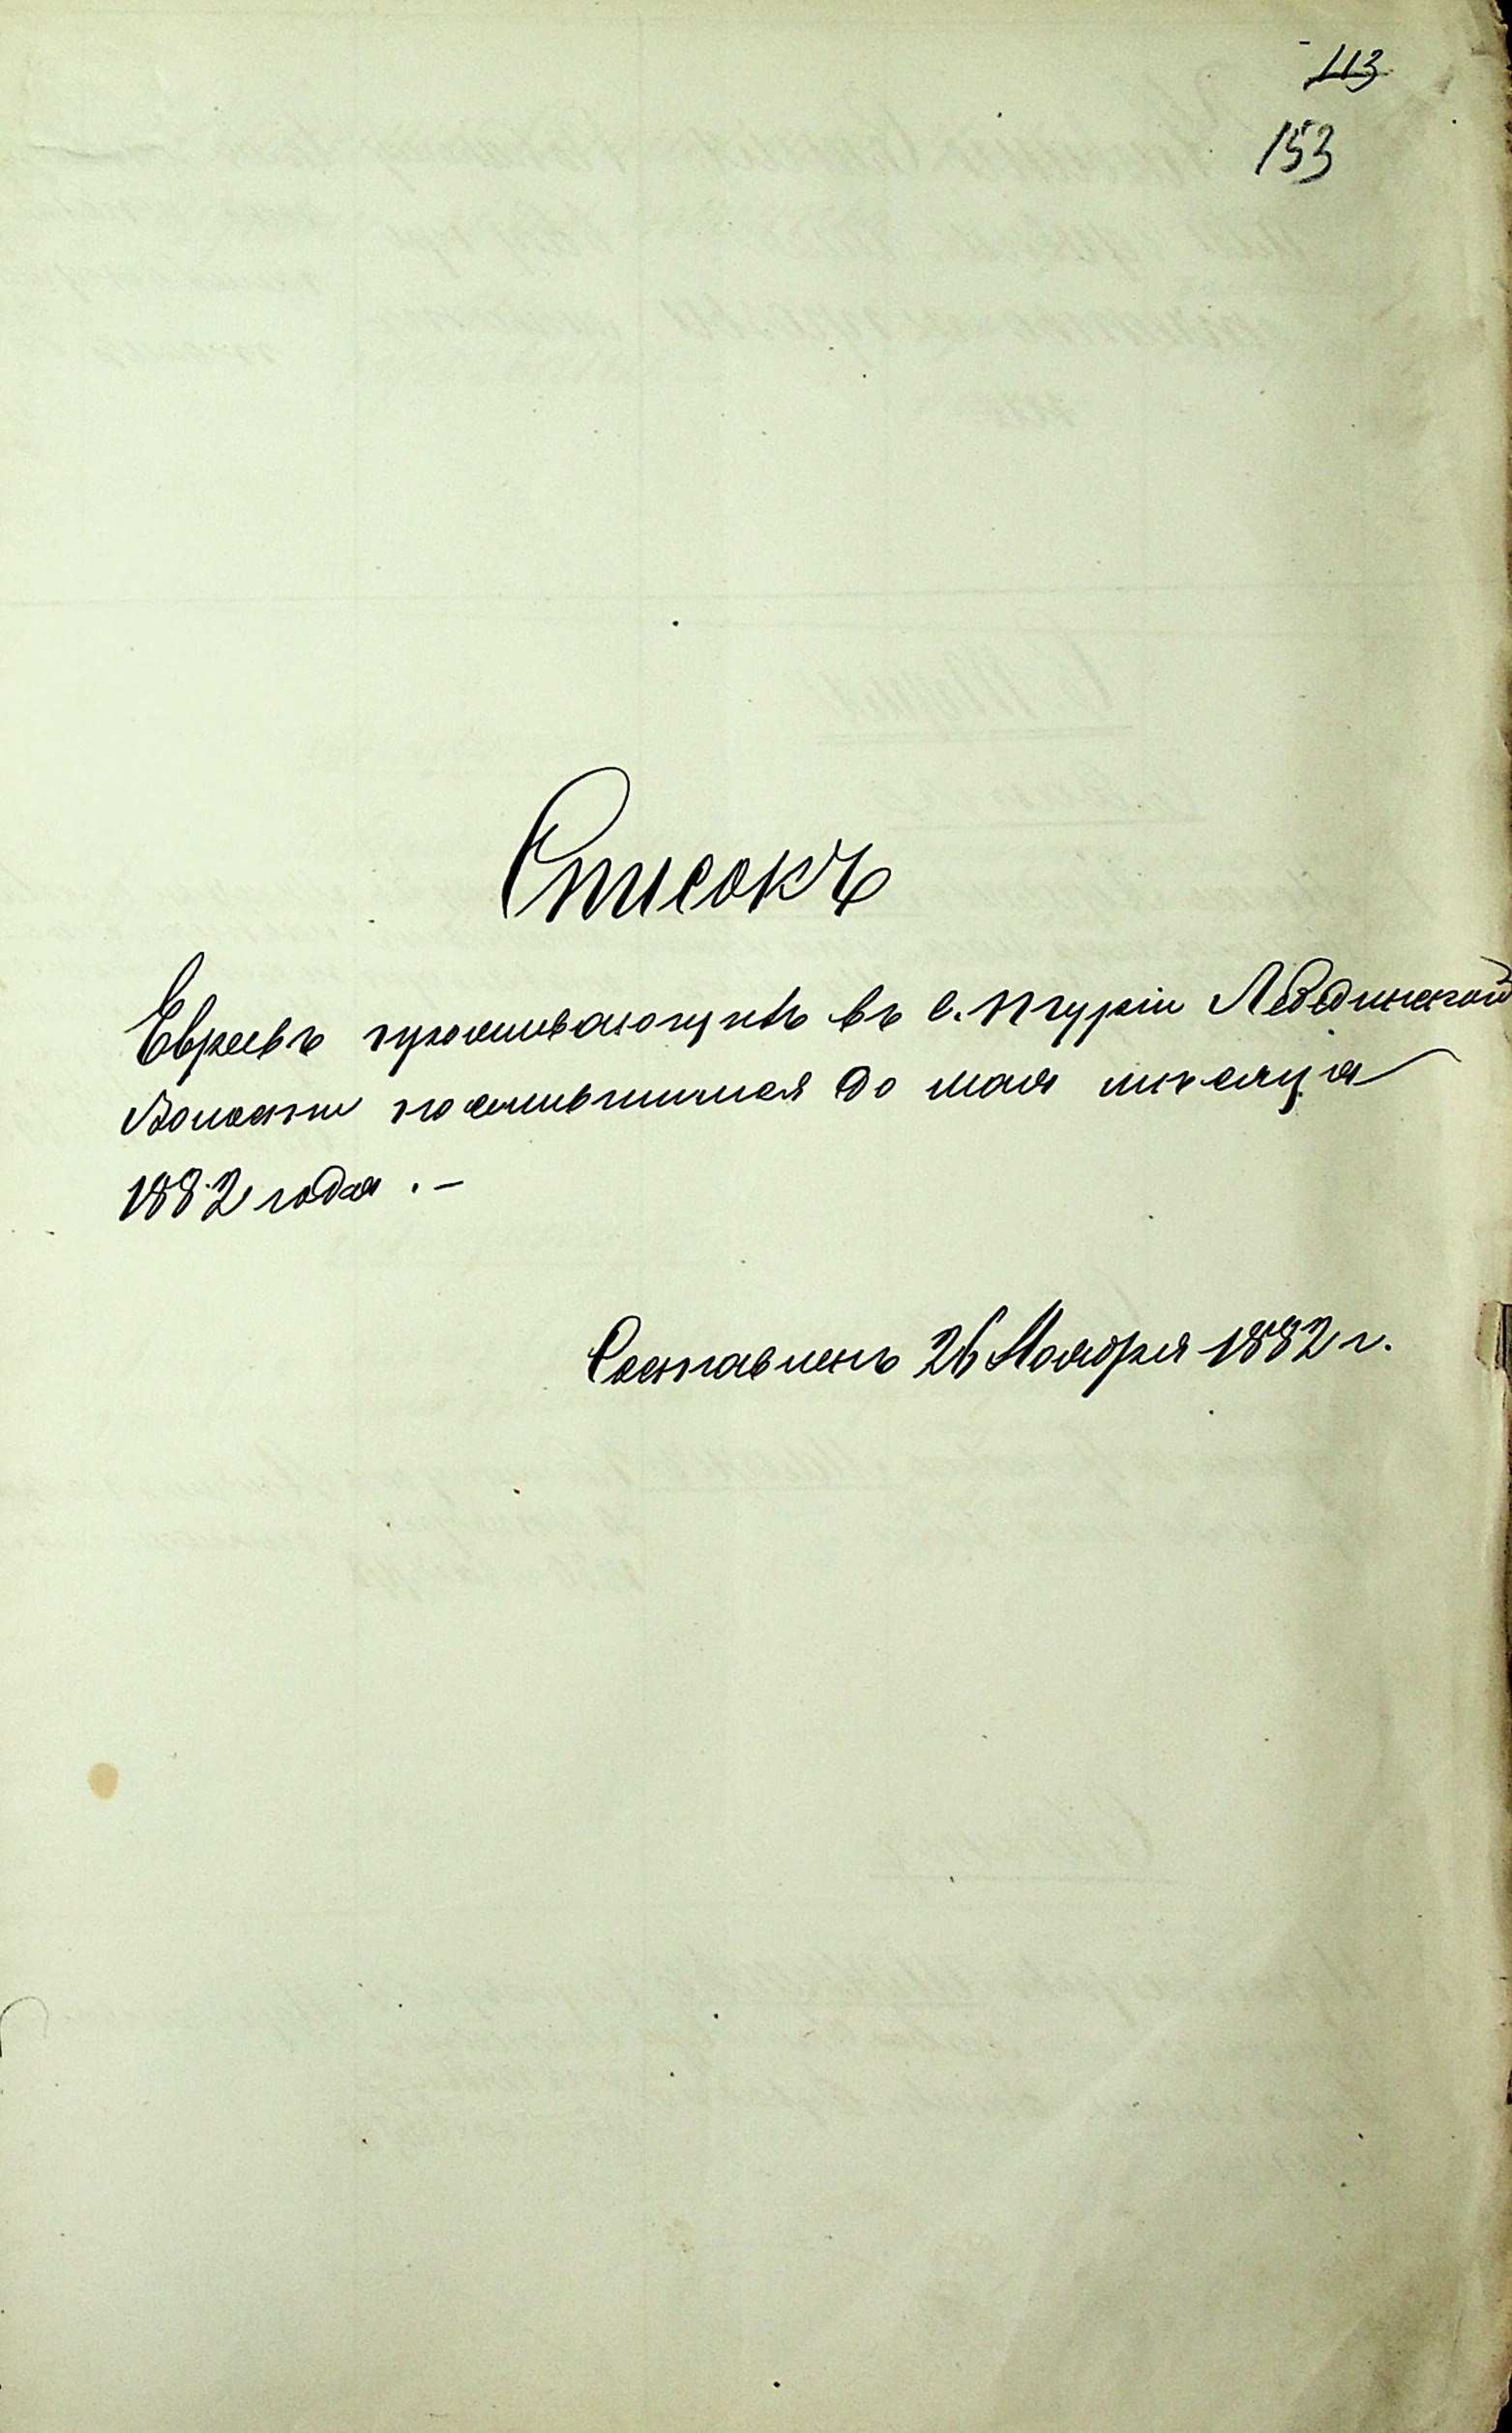 113
153
Списокъ
Евреевъ проживающихъ въ с. Туріи Лебединской
Волости поселившимся до мая мѣсяца
1882 года . –
Составленъ 26 Ноября 1882 г.